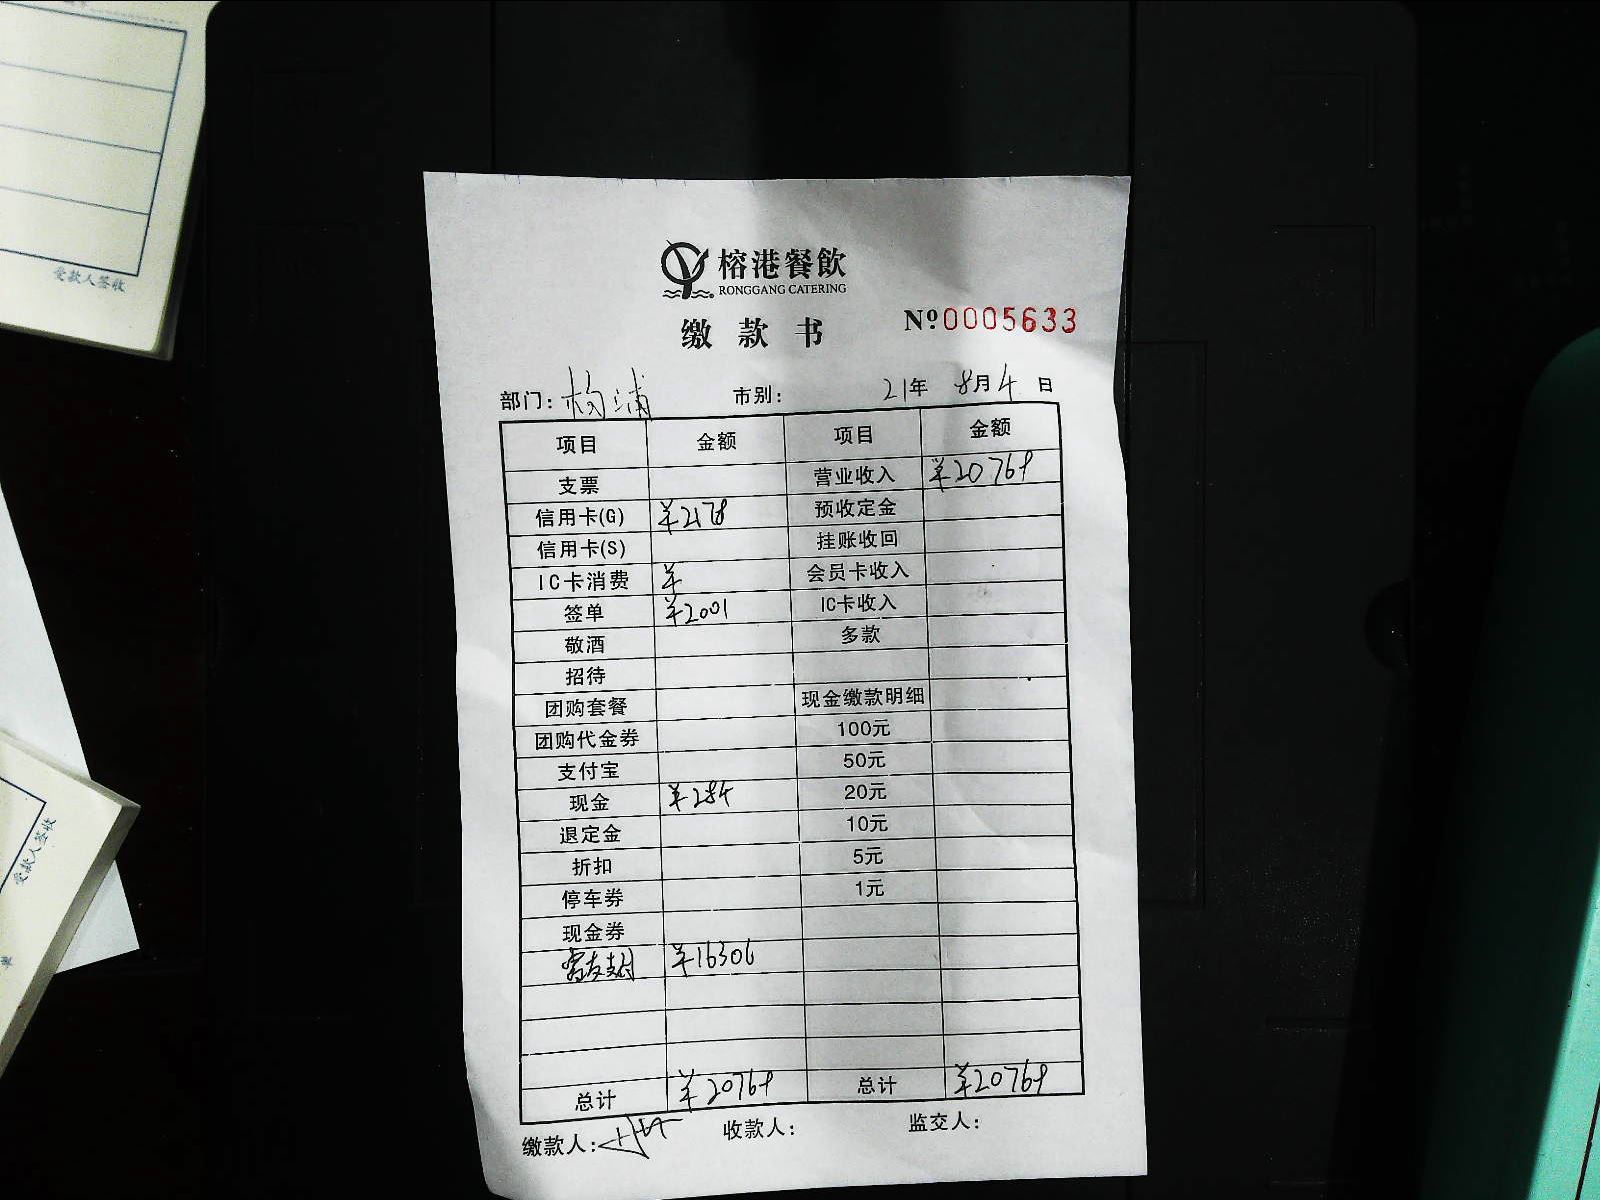 受款人签收
榕港餐飲
RONGGANG CATERING
缴款书
Nº0005633
部门: 杨浦 市别: 21年 8月4日
项目 金额 项目 金额
支票 营业收入 ¥20769
信用卡(G) ¥2178 预收定金
信用卡(S) 挂账收回
IC卡消费 ¥ 会员卡收入
签单 ¥2001 IC卡收入
敬酒 多款
招待
团购套餐 现金缴款明细
团购代金券 100元
支付宝 50元
现金 ¥284 20元
退定金 10元
折扣 5元
停车券 1元
现金券
富友支付 ¥16306
总计 ¥20769 总计 ¥20769
缴款人: 收款人: 监交人:
受款人签收